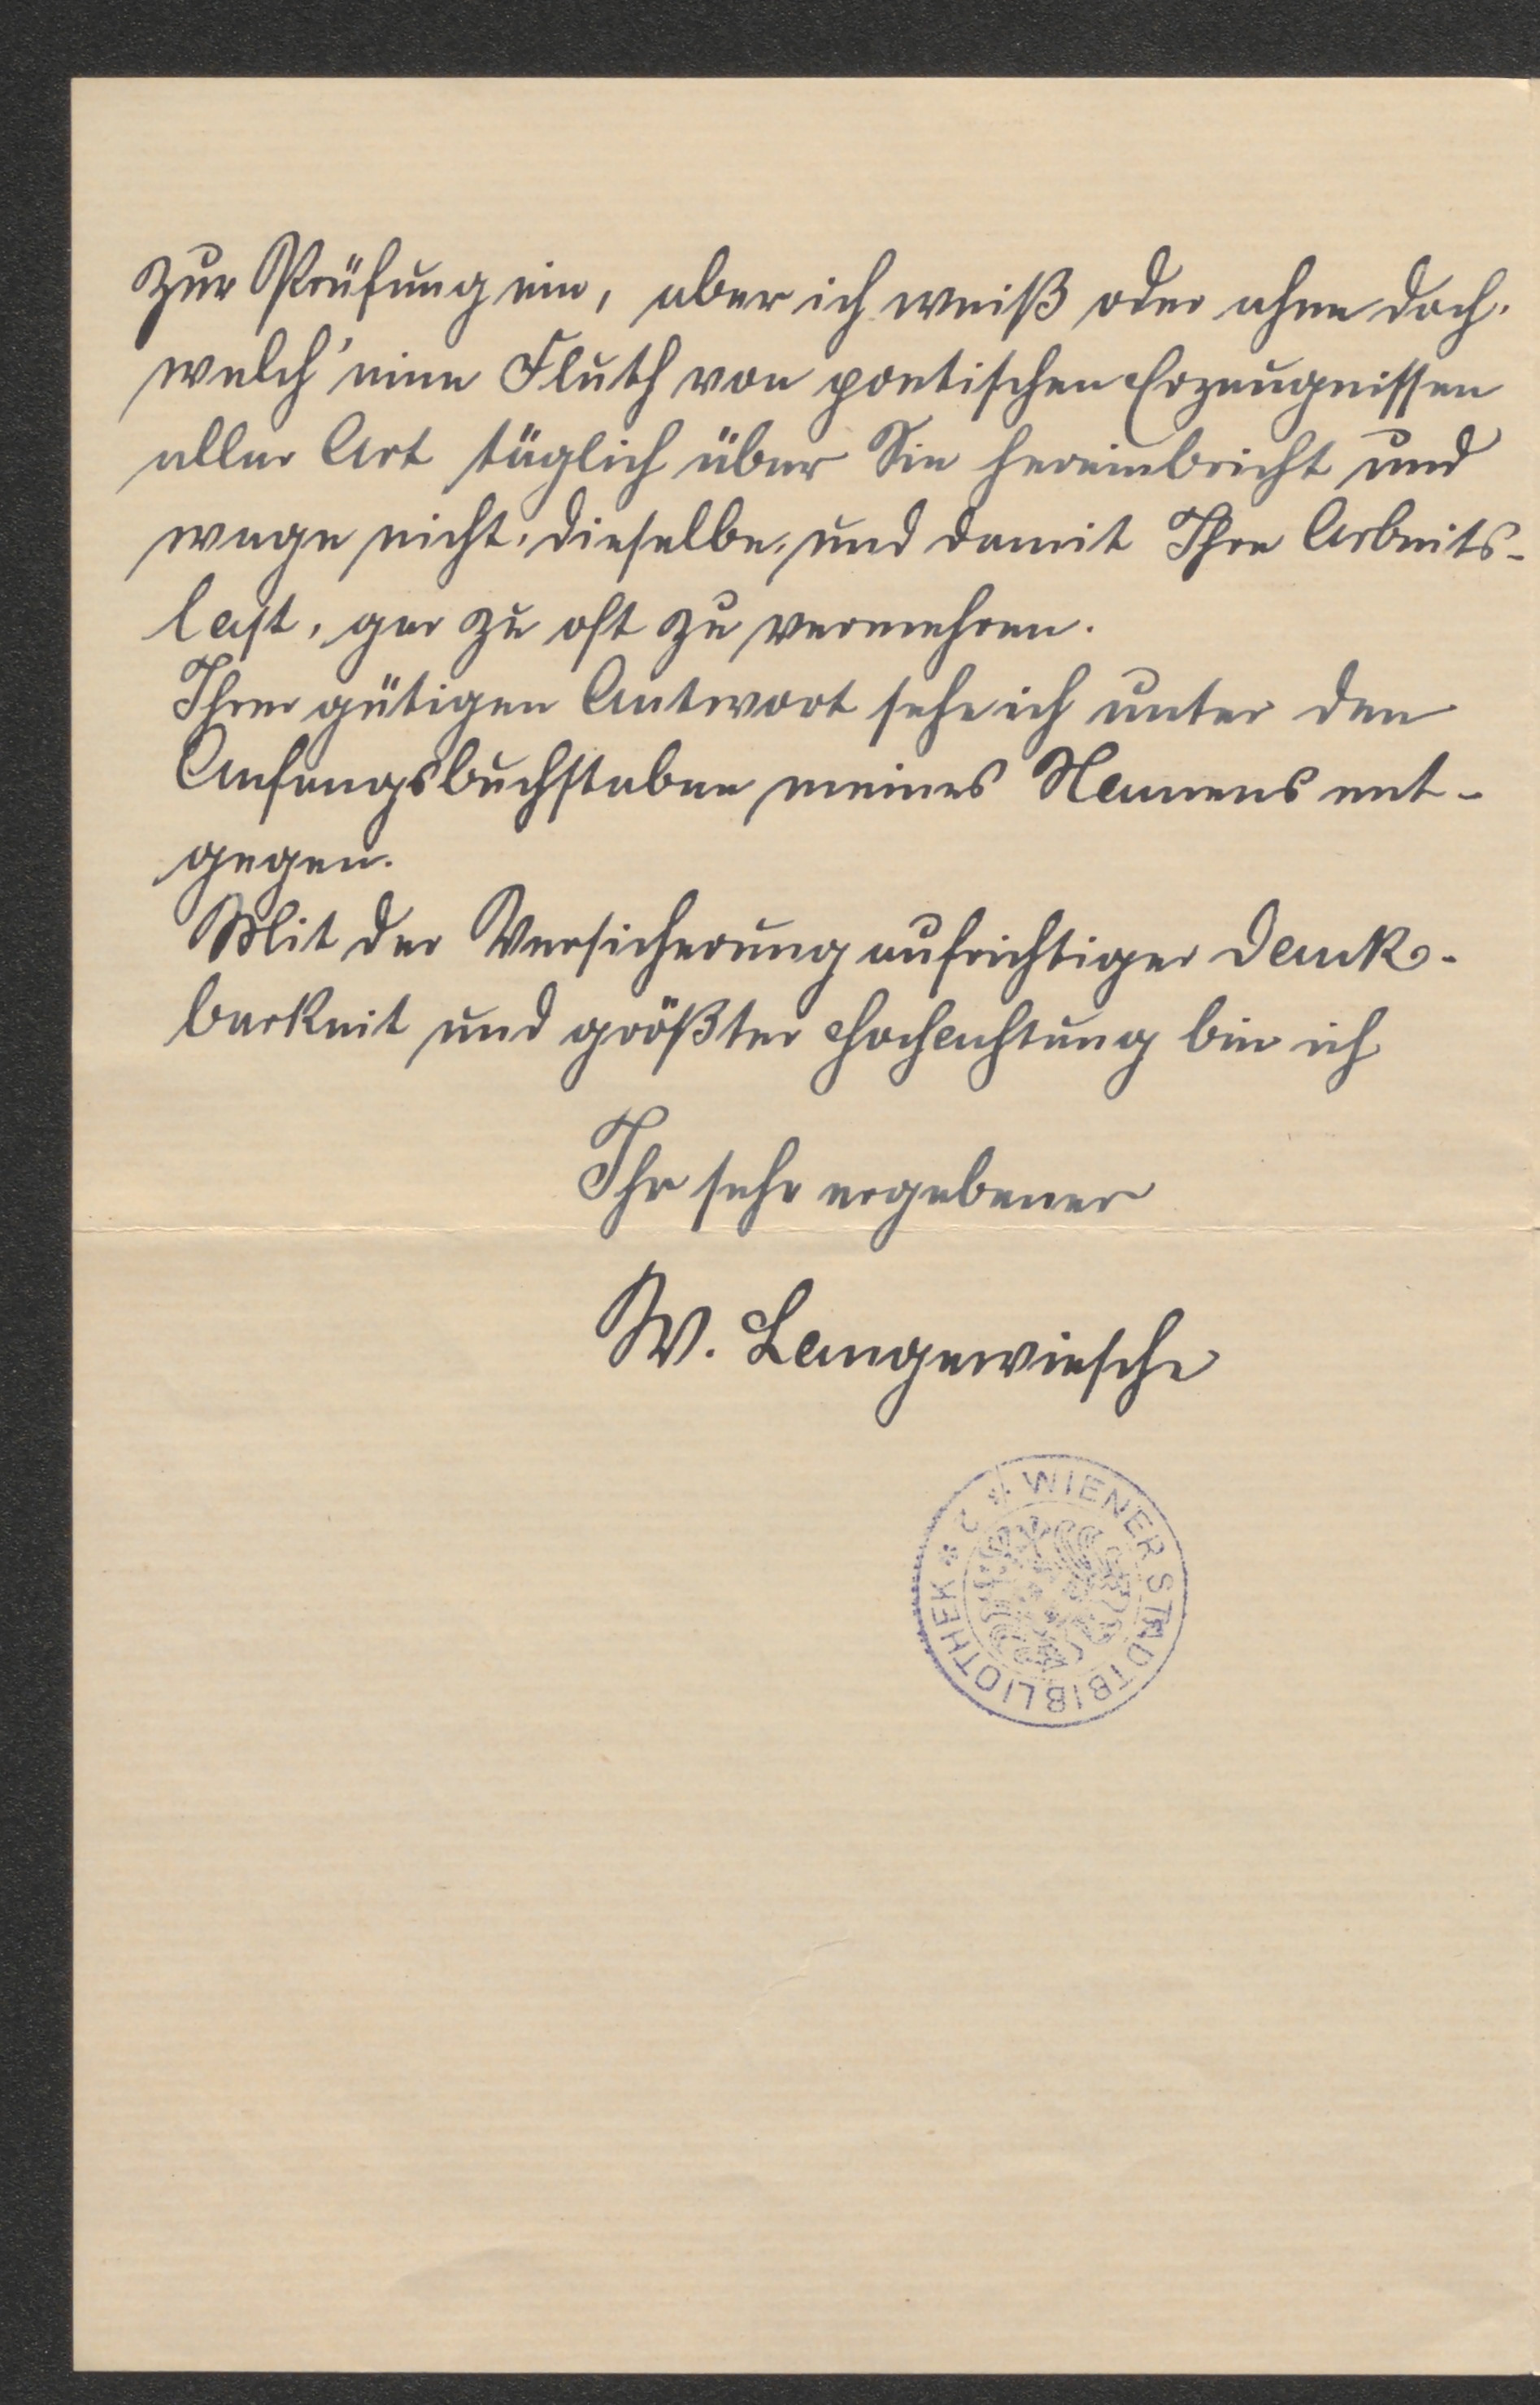 zur Prüfung ein, aber ich weiß oder ahne doch,
welch' eine Fluth von poetischen Erzeugnissen
aller Art täglich über Sie hereinbricht und
wage nicht, dieselbe, und damit Ihre Arbeits-
last, gar zu oft zu vermehren.
Ihrer gütigen Antwort sehe ich unter den
Anfangsbuchstaben meines Namens ent-
gegen.
Mit der Versicherung aufrichtiger Dank-
barkeit und größter Hochachtung bin ich
Ihr sehr ergebener
W. Langewiesche
C * WIENER STADTBIBLIOTHEK *